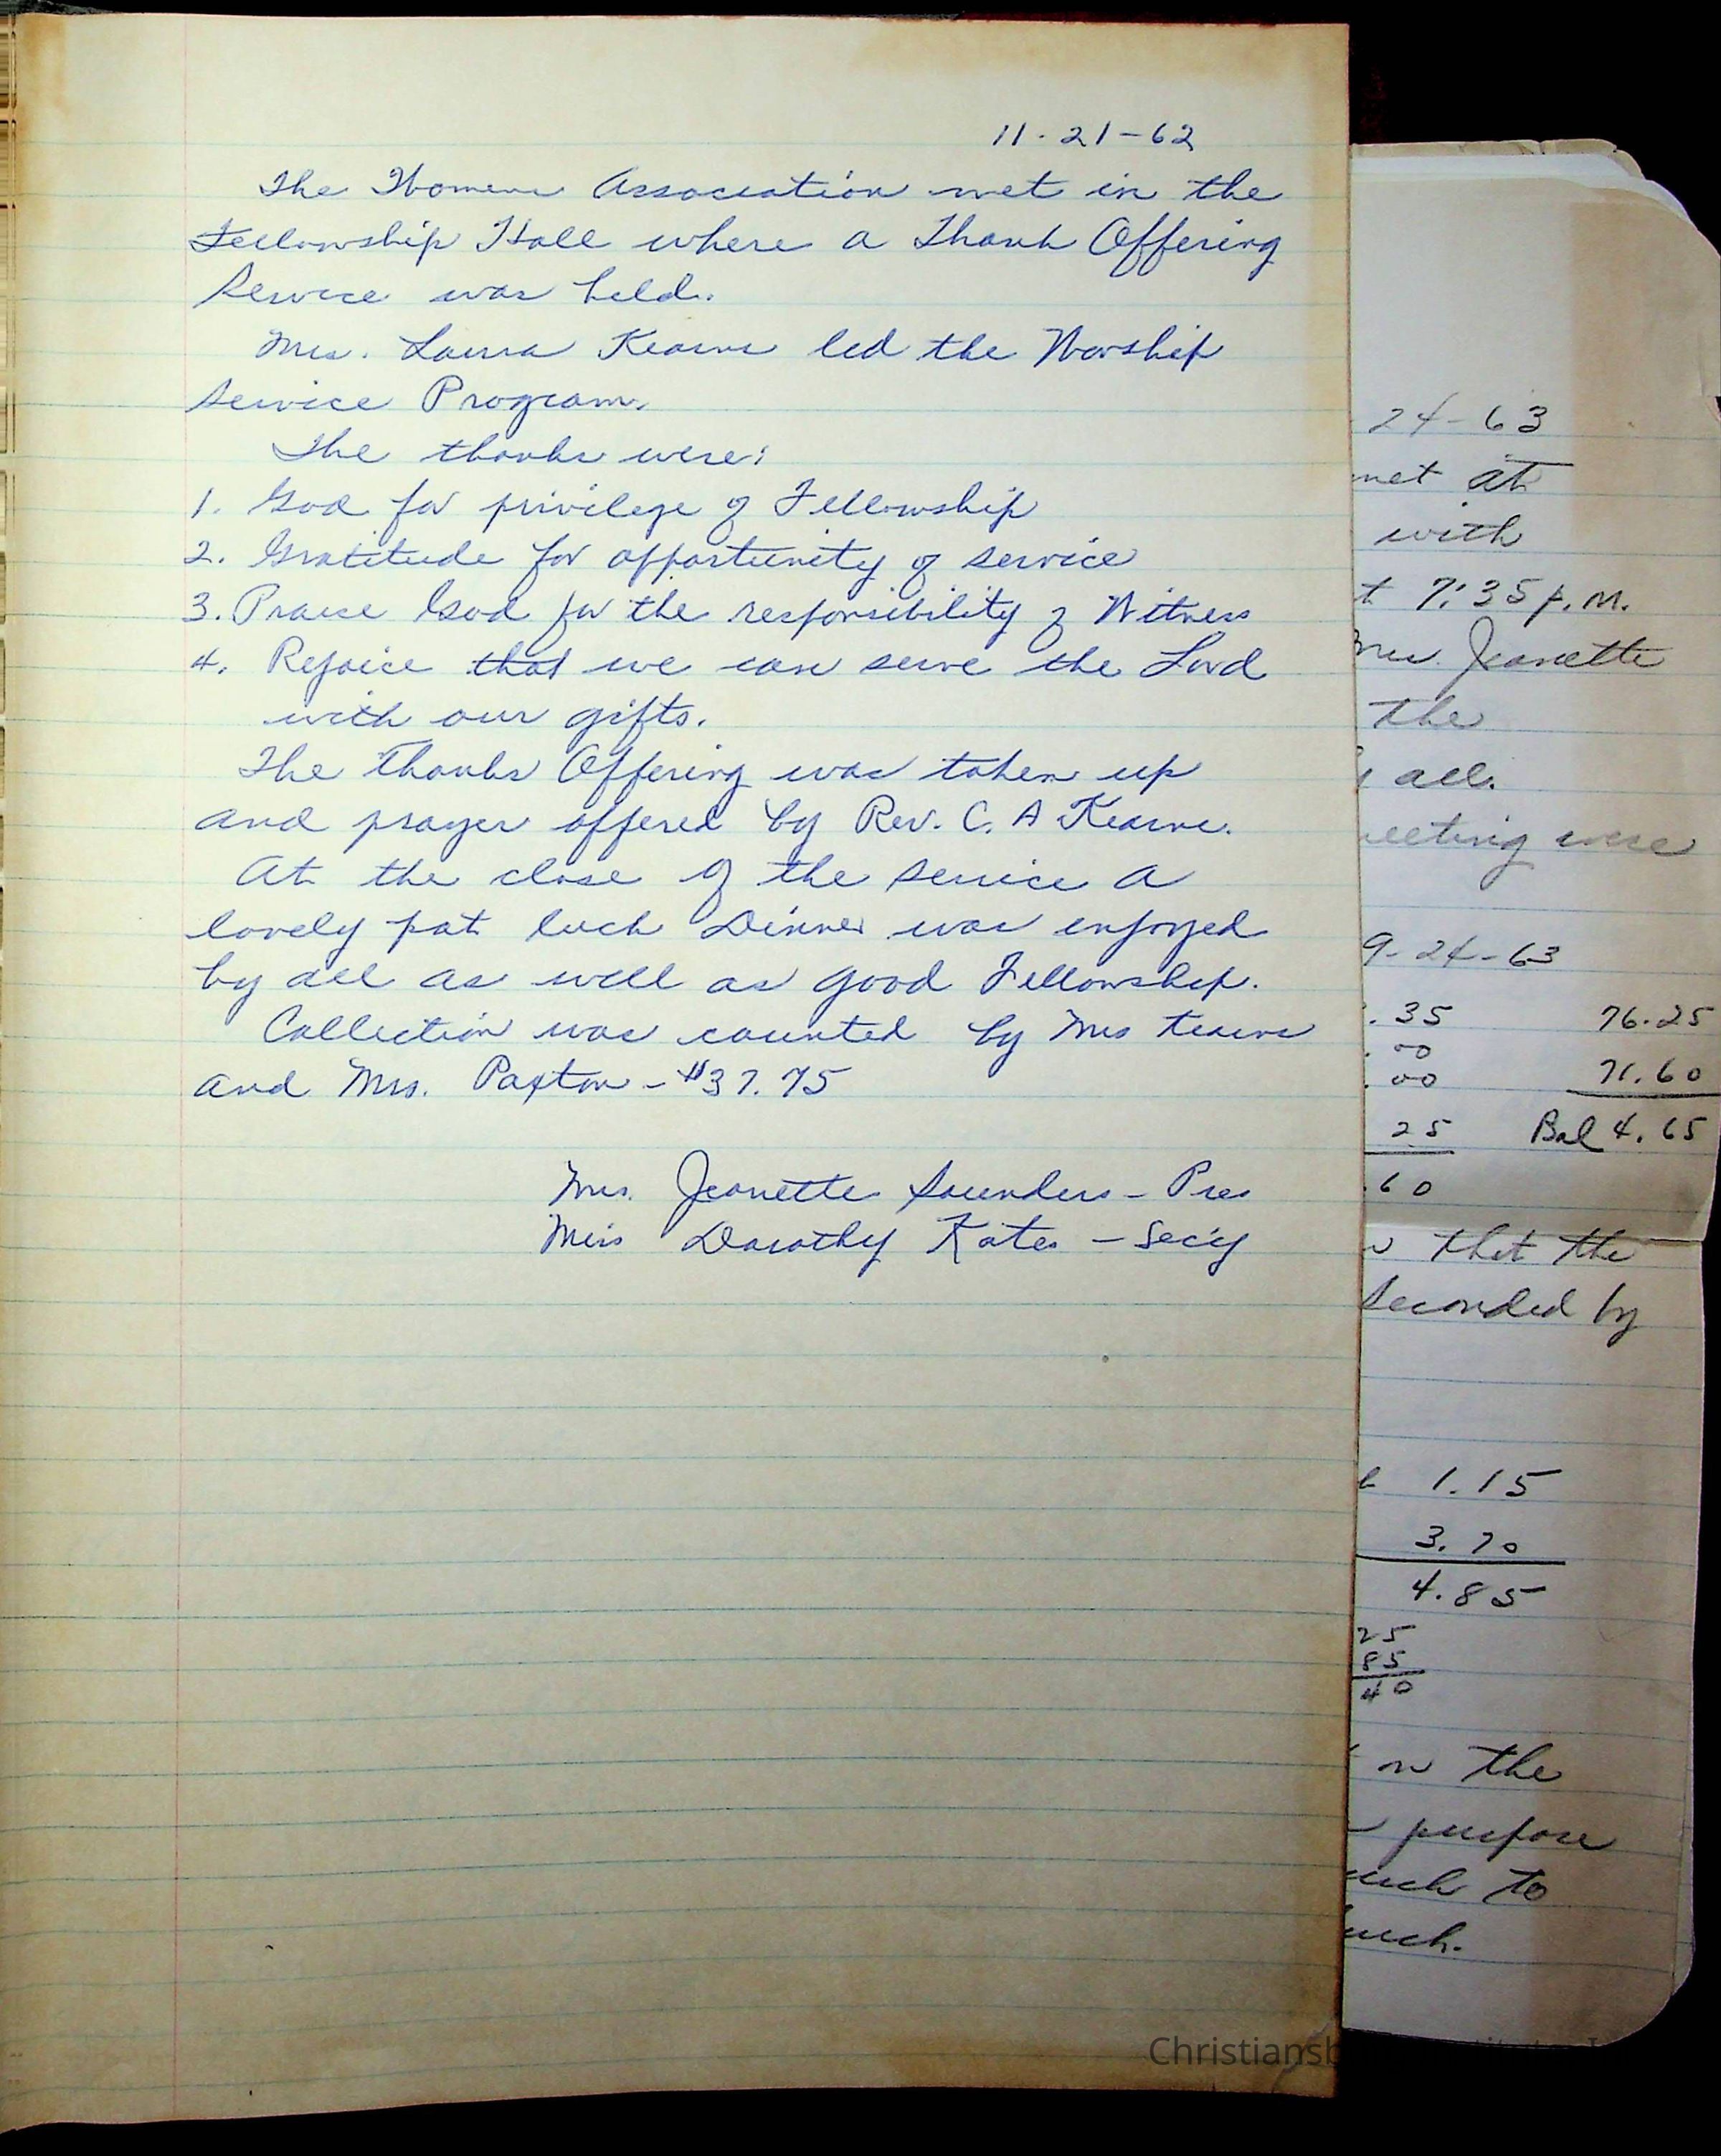 11-21-62
The Womens Association met in the
Fellowship Hall where a Thank Offering
Service was held.
Mrs. Laura Kearns led the Worship
Service Program.
The thanks were:
1. God for privilege of Fellowship
2. Gratitude for opportunity of service
3. Praise God for the responsibility of Witness
4. Rejoice that we can serve the Lord
with our gifts.
The Thanks Offering was taken up
and prayer offered by Rev. C. A Kearns.
At the close of the service a
lovely pot luck Dinner was enjoyed
by all as well as good Fellowship.
Collection was counted by Mrs Kearns
and Mrs. Paxton - $37.75
Mrs. Jeanette Saunders - Pres
Miss Dorothy Kates - Sec'y
24-63
met at
with
t 7:35 p.m.
Mrs. Jeanette
the
all.
meeting were
9-24-63
.35 76.25
.00
.00 71.60
25 Bal 4.65
.60
that the
Seconded by
1.15
3.70
4.85
25
85
40
on the
purpose
to
Christiansb